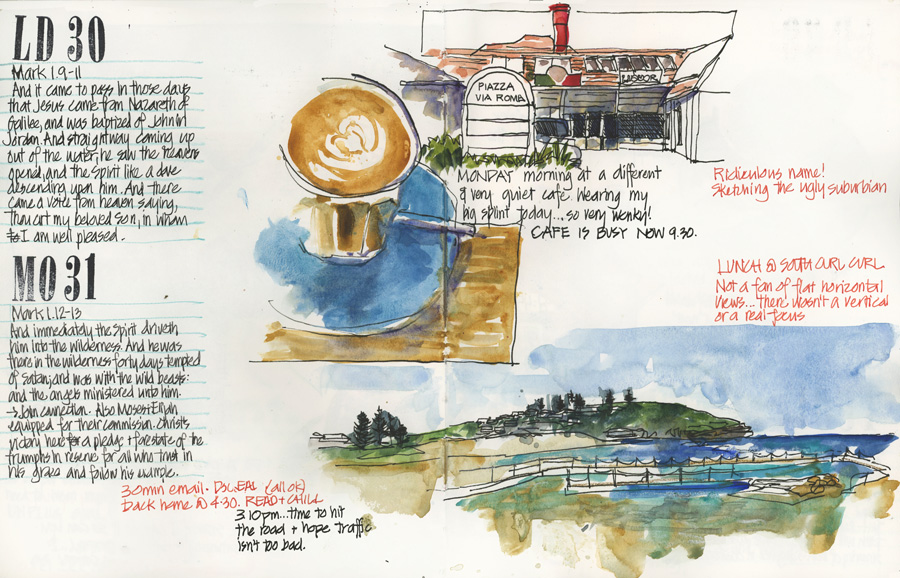 LD 30
Mark 1.9-11
And it came to pass in those days
that Jesus came from Nazareth of
Galilee, and was baptized of John in
Jordan. And straightway coming up
out of the water, he saw the heavens
opened, and the Spirit like a dove
descending upon him. And there
came a voice from heaven saying,
Thou art my beloved son, in whom
I am well pleased.
MO 31
Mark 1.12-13
And immediately the Spirit driveth
him into the wilderness. And he was
there in the wilderness forty days tempted
of Satan; and was with the wild beasts:
and the angels ministered unto him.
→ John connection. Also Moses + Elijah
equipped for their commission. Christ's
victory here for a pledge + foretaste of the
triumphs in reserve for all who trust in
his grace and follow his example.
30min email. (all ok)
back home @ 4.30. READ + CHILL
3.10pm...time to hit
the road + hope traffic
isn't too bad.
PIAZZA
VIA ROMA
LIQUOR
MONDAY morning at a different
& very quiet cafe. Wearing my
big splint today...so very wonky!
CAFE IS BUSY NOW 9.30.
Ridiculous name!
Sketching the ugly suburbian
LUNCH @ SOUTH CURL CURL
Not a fan of flat horizontal
views...there wasn't a vertical
or a real focus